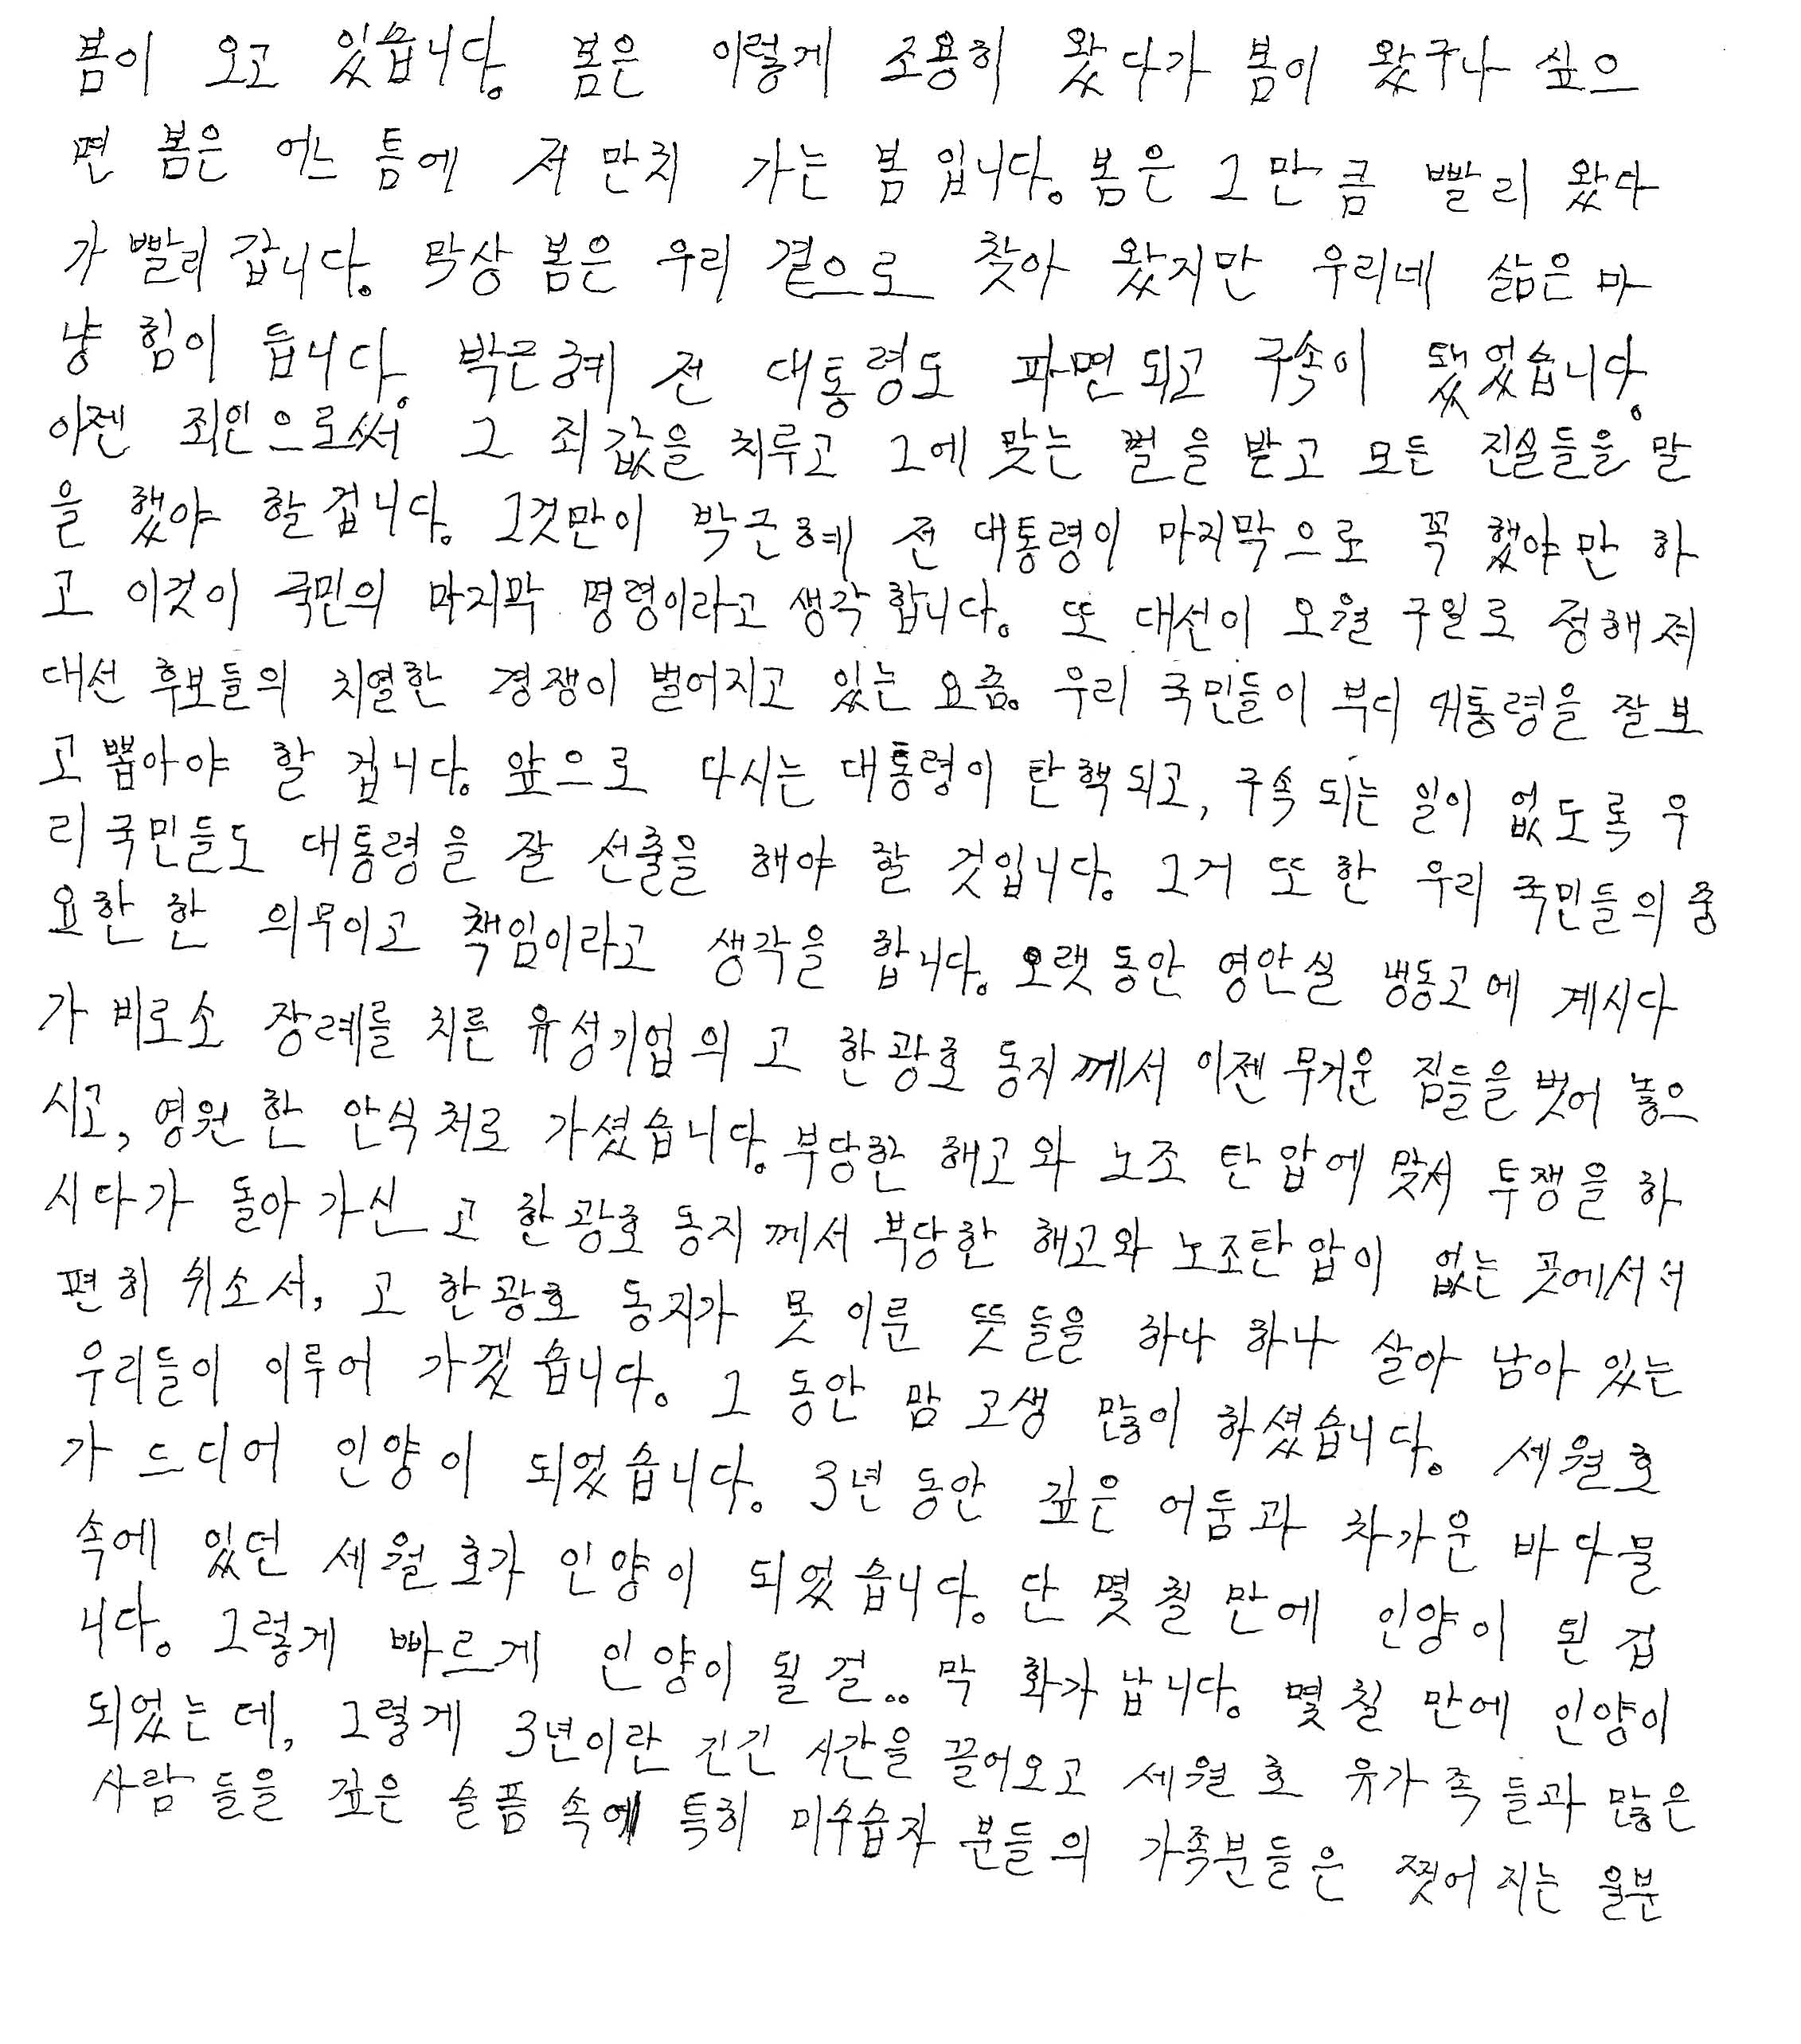 봄이 오고 있습니다. 봄은 이렇게 조용히 왔다가 봄이 왔구나 싶으
면 봄은 어느 틈에 저 만치 가는 봄 입니다. 봄은 그 만큼 빨리 왔다
가 빨리 갑니다. 막상 봄은 우리 곁으로 찾아 왔지만 우리네 삶은 마
냥 힘이 듭니다. 박근혜 전 대통령도 파면되고 구속이 됐었습니다.
이젠 죄인으로써 그 죄값을 치루고 그에 맞는 벌을 받고 모든 진실들을 말
을 했야 할 겁니다. 그것만이 박근혜 전 대통령이 마지막으로 꼭 했야만 하
고 이것이 국민의 마지막 명령이라고 생각 합니다. 또 대선이 오월 구일로 정해져
대선 후보들의 치열한 경쟁이 벌어지고 있는 요즘. 우리 국민들이 부디 대통령을 잘 보
고 뽑아야 할 겁니다. 앞으로 다시는 대통령이 탄핵되고, 구속 되는 일이 없도록 우
리 국민들도 대통령을 잘 선출을 해야 할 것입니다. 그거 또 한 우리 국민들의 중
요한 한 의무이고 책임이라고 생각을 합니다. 오랫 동안 영안실 냉동고에 계시다
가 비로소 장례를 치른 유성기업의 고 한광호 동지께서 이젠 무거운 짐들을 벗어 놓으
시고, 영원 한 안식처로 가셨습니다. 부당한 해고와 노조 탄압에 맞서 투쟁을 하
시다가 돌아 가신 고 한광호 동지께서 부당한 해고와 노조탄압이 없는 곳에서서
편히 쉬소서, 고 한광호 동지가 못 이룬 뜻 들을 하나 하나 살아 남아 있는
우리들이 이루어 가겠습니다. 그 동안 맘 고생 많이 하셨습니다. 세월호
가 드디어 인양이 되었습니다. 3년 동안 깊은 어둠과 차가운 바다물
속에 있던 세월호가 인양이 되었습니다. 단 몇 칠 만에 인양이 된 겁
니다. 그렇게 빠르게 인양이 될 걸.. 막 화가 납니다. 몇 칠 만에 인양이
되었는데, 그렇게 3년이란 긴긴 시간을 끌어오고 세월호 유가족 들과 많은
사람 들을 깊은 슬픔 속에 특히 미수습자 분들의 가족분들은 찢어 지는 울분